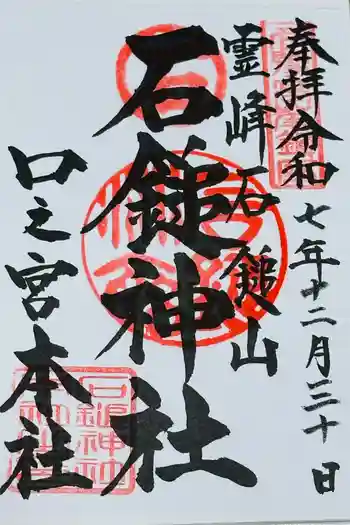 奉拝令和七年十二月三十日
霊峰石鎚山
石鎚神社
口之宮本社
石鎚神社